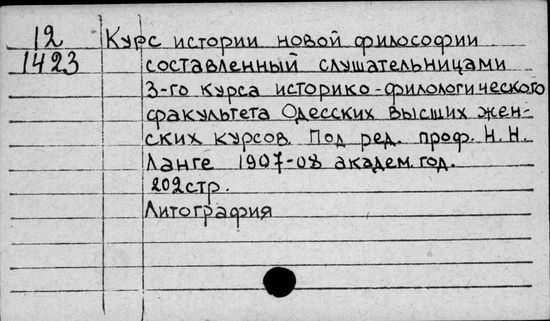 12
1423
Курс истории новой философии
составленный слушательницами
3-го курса историко-филологического
факультета Одесских высших жен-
ских курсов. Под ред. проф. Н.Н.
Ланге 1907-08 академ. год.
202стр.
Литография